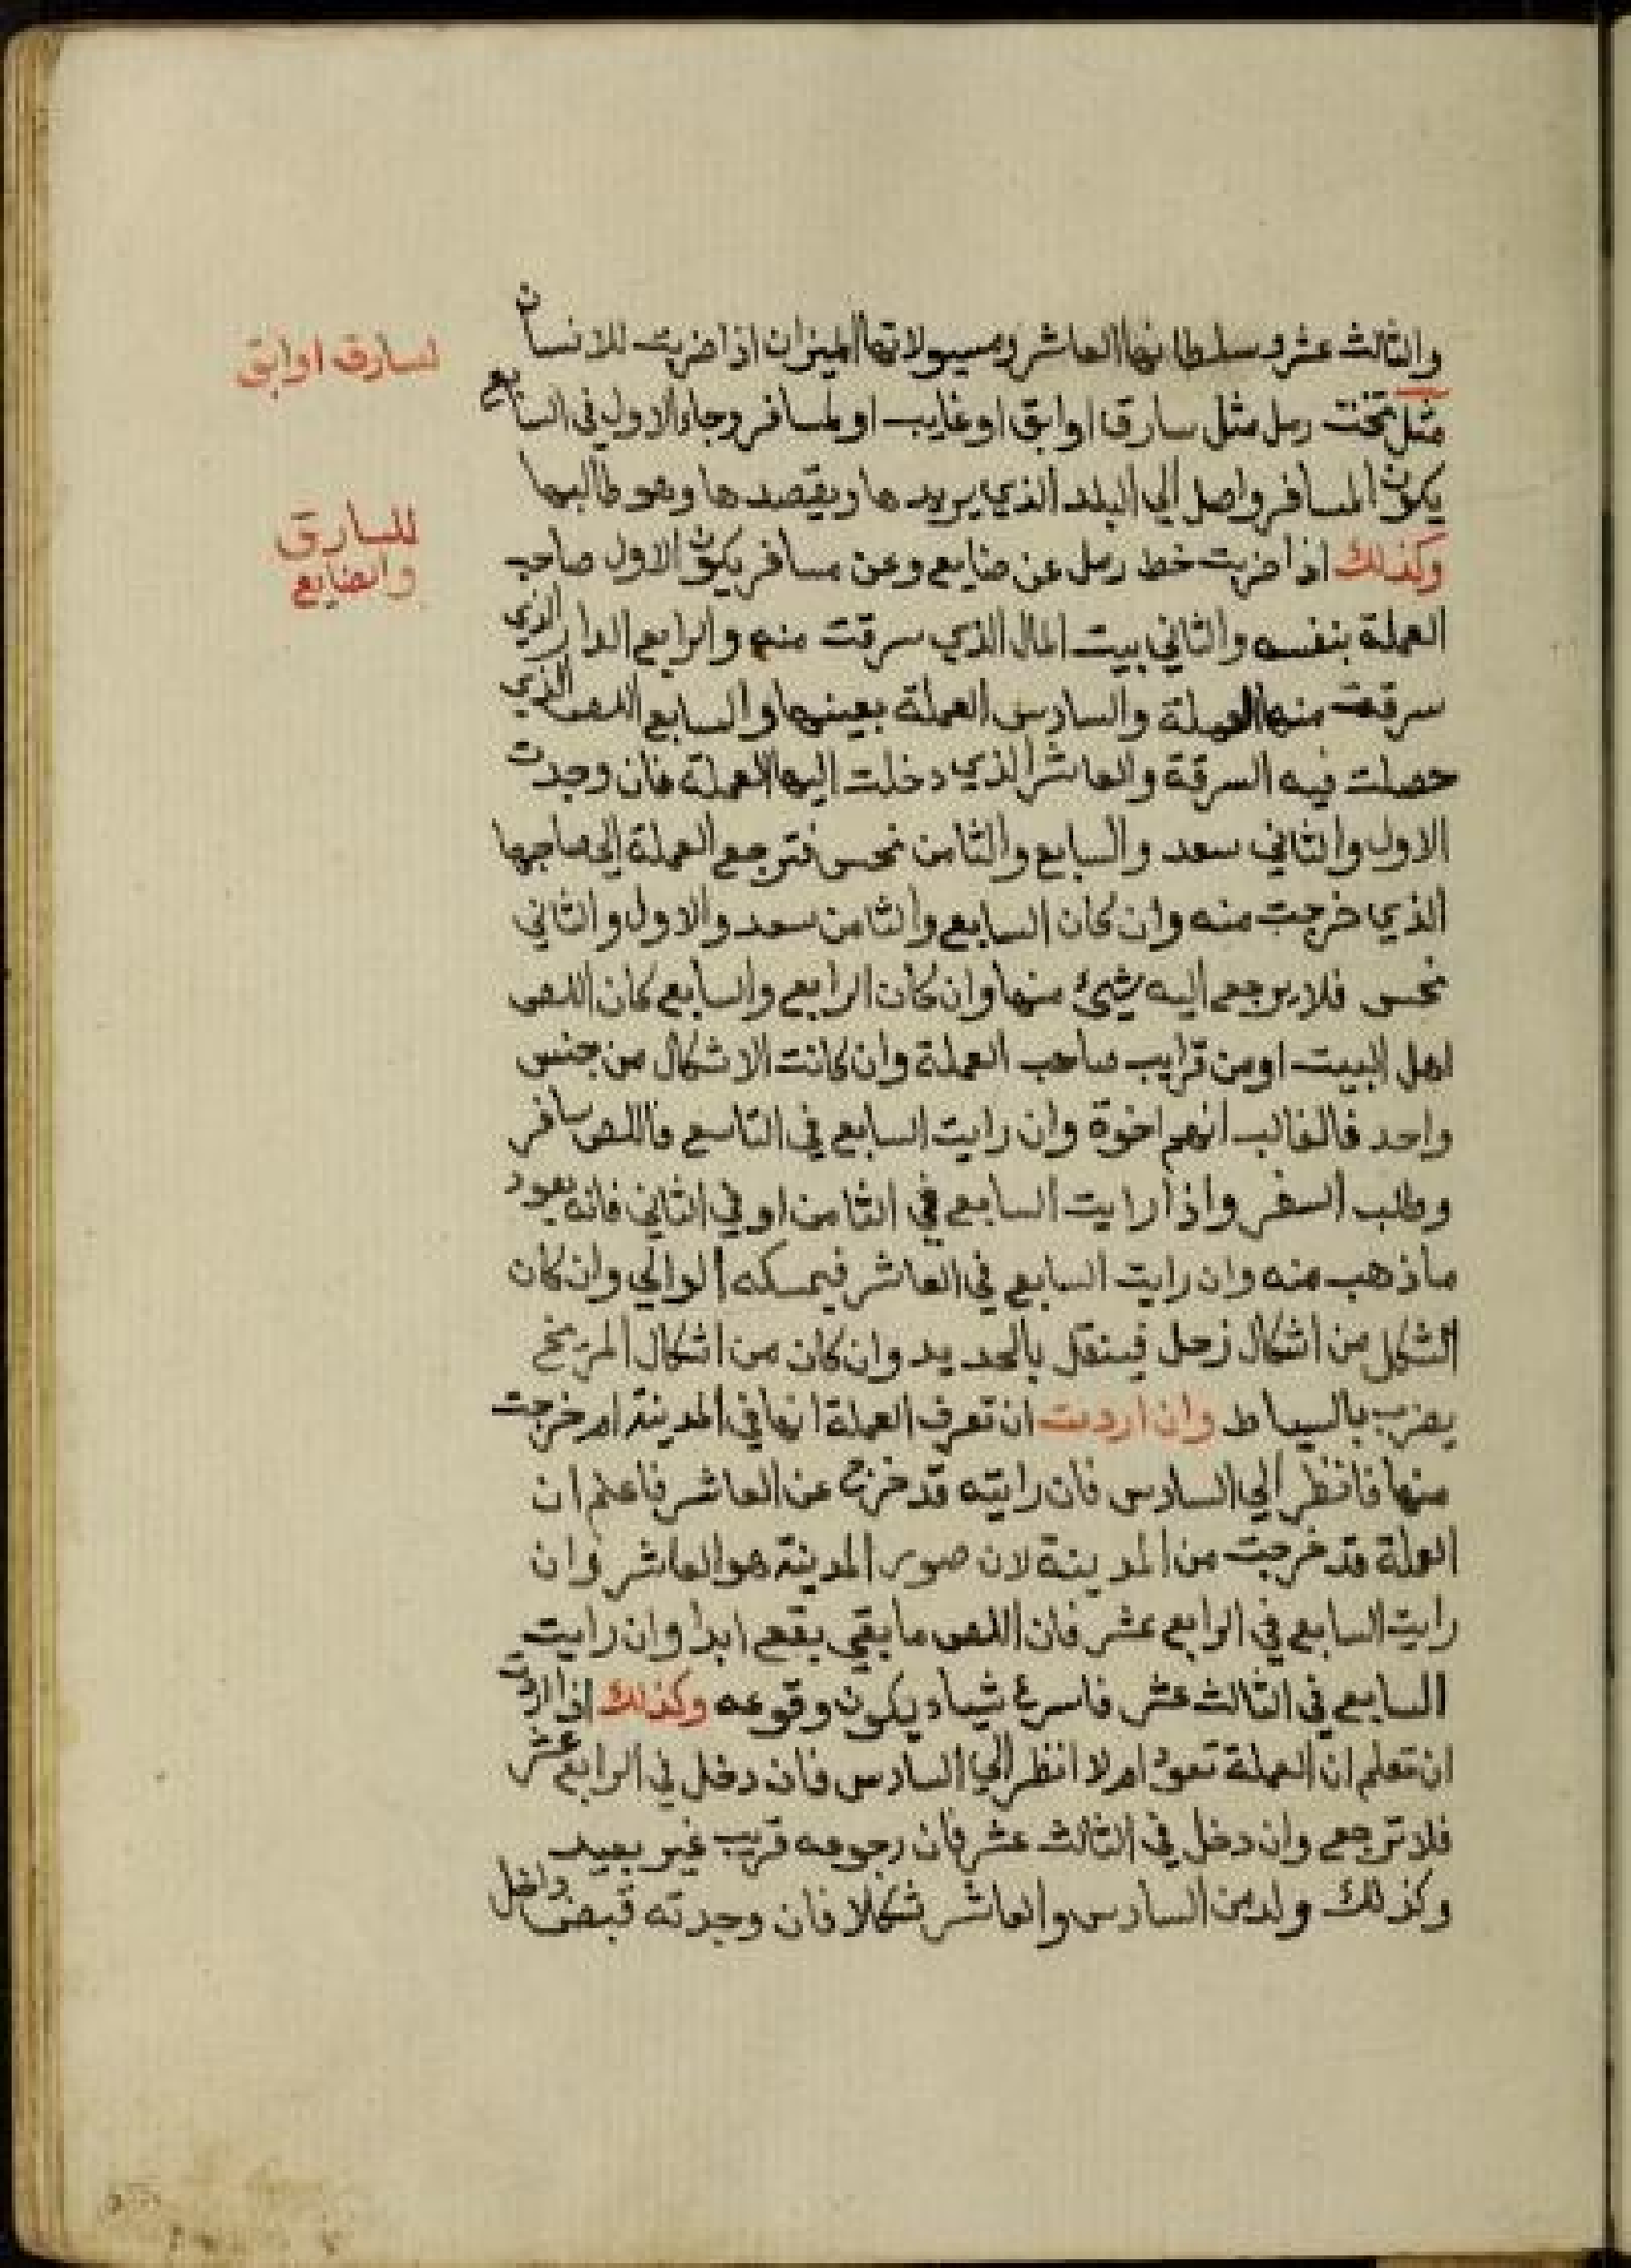 والثالث عشر وسلطانها العاشر ومسيولاتها الميزان اذا ضربت للانسان
مثل تخت رمل مثل سارق اوابق اوغايب او لمسافر وجاء الاول في السابع
يكون المسافر واصل الي البلد الذي يريدها ويقصدها وهو طالبها
وكذلك اذا ضربت خط رمل عن ضايع وعن مسافر يكون الاول صاحب
العملة بنفسه والثاني بيت المال الذي سرقت منه والرابع الدار الذي
سرقت منها العملة والسادس العملة بعينها والسابع اللص الذي
حصلت فيه السرقة والعاشر الذي دخلت اليها العملة فان وجدت
الاول والثاني سعد والسابع والثامن نحس فترجع العملة الي صاحبها
الذي خرجت منه وان كان السابع والثامن سعد والاول والثاني
نحس فلا يرجع اليه شيئ منها وان كان الرابع والسابع كان اللص
اهل البيت اومن قرايب صاحب العملة وان كانت الاشكال من جنس
واحد فالغالب انهم اخوة وان رايت السابع في التاسع فاللص سافر
وطلب السفر واذا رايت السابع في الثامن او في الثاني فانه يعود
ما ذهب منه وان رايت السابع في العاشر فيمسكه الوالي وان كان
الشكل من اشكال زحل فينقل بالحديد وان كان من اشكال المريخ
يضرب بالسياط وان اردت ان تعرف العملة انها في المدينة ام خرجت
منها فانظر الي السادس فان رايته قد خرج عن العاشر فاعلم ان
العملة قد خرجت من المدينة لان صور المدينة هو العاشر وان
رايت السابع في الرابع عشر فان اللص ما بقي يقع ابدا وان رايت
السابع في الثالث عشر فاسرع شياء ديكون وقوعه وكذلك اذا اردت
ان تعلم ان العملة تعود ام لا انظر الي السادس فان دخل في الرابع عشر
فلا ترجع وان دخل في الثالث عشر فان رجوعه قريب غير بعيد
وكذلك ولد من السادس والعاشر شكلا فان وجدته قبض داخل
لسارق اوابق
للسارق
والضايع